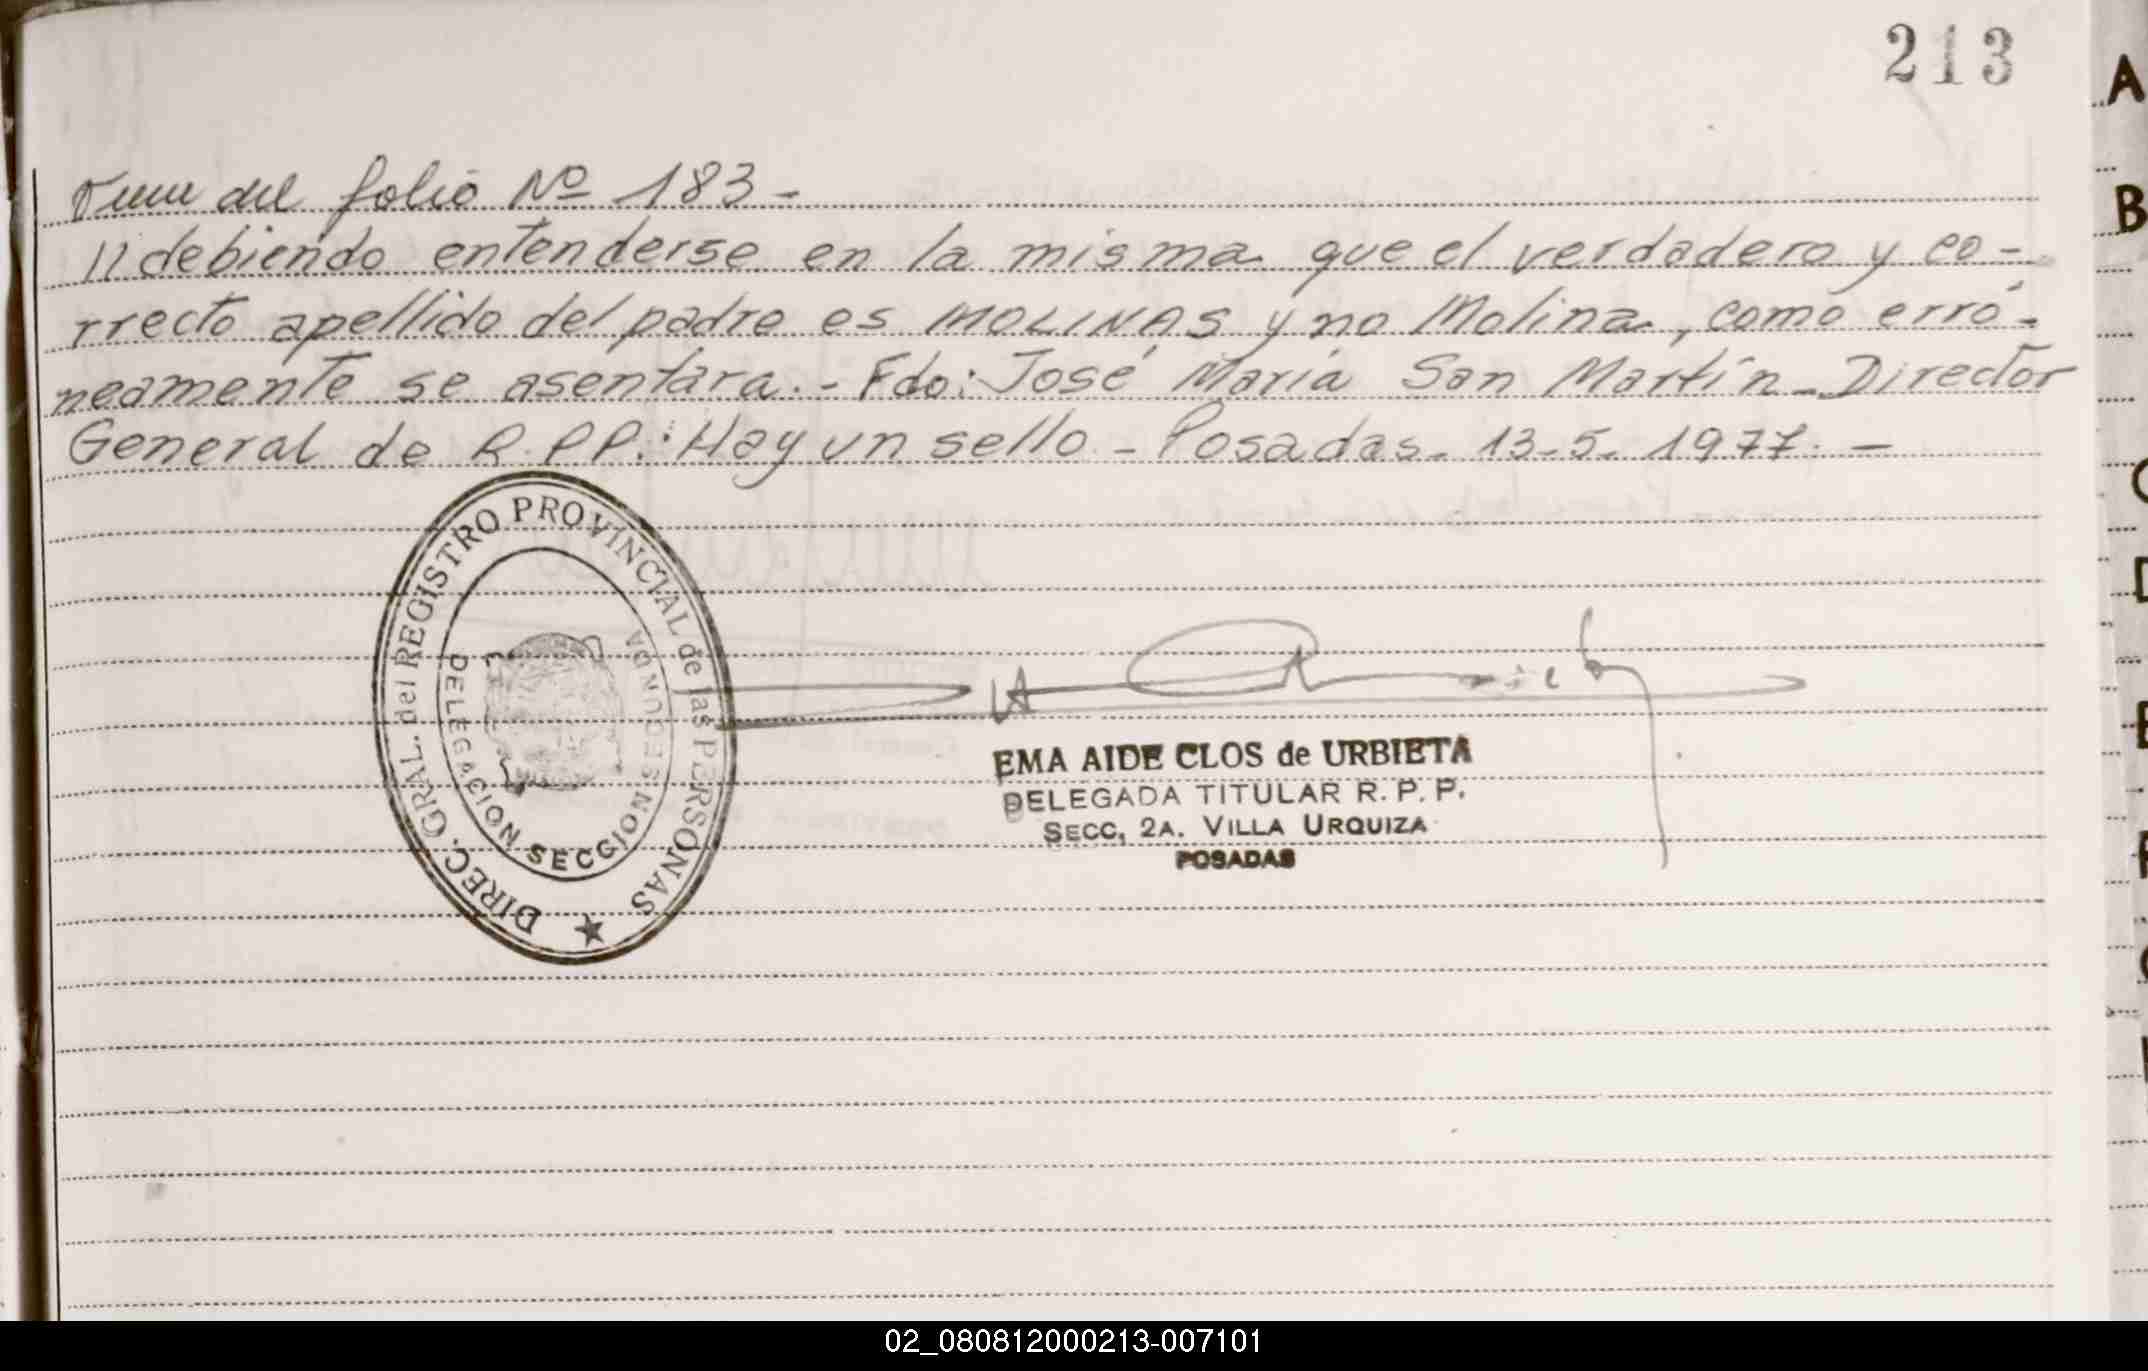 213
Viene del folio Nº 183 -
// debiendo entenderse en la misma que el verdadero y co-
rrecto apellido del padre es MOLINAS y no Molina, como erró-
neamente se asentara. - Fdo: José María San Martín - Director
General de R.P.P. Hay un sello - Posadas. 13-5-1977. -
DIREC. GRAL. del REGISTRO PROVINCIAL de las PERSONAS
DELEGACION SECCION SEGUNDA
EMA AIDE CLOS de URBIETA
DELEGADA TITULAR R. P. P.
SECC, 2A. VILLA URQUIZA
POSADAS
A
B
C
D
E
F
02_080812000213-007101